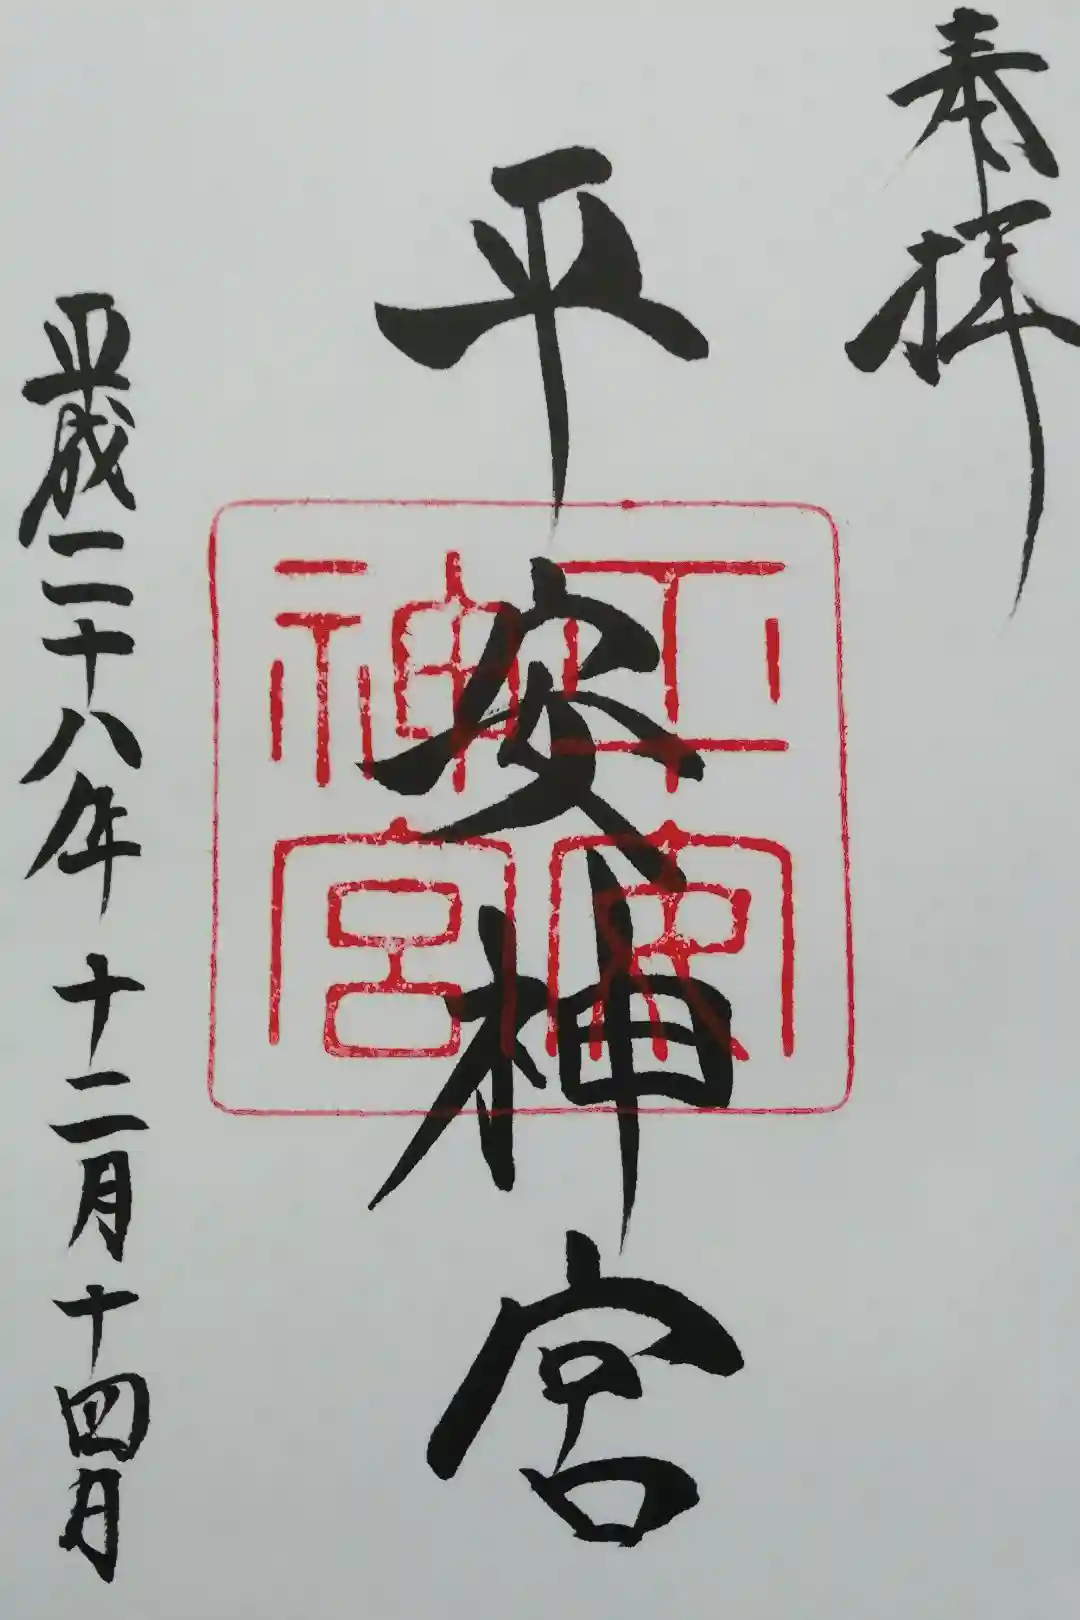 奉拝
平安神宮
平安神宮
平成二十八年十二月十四日